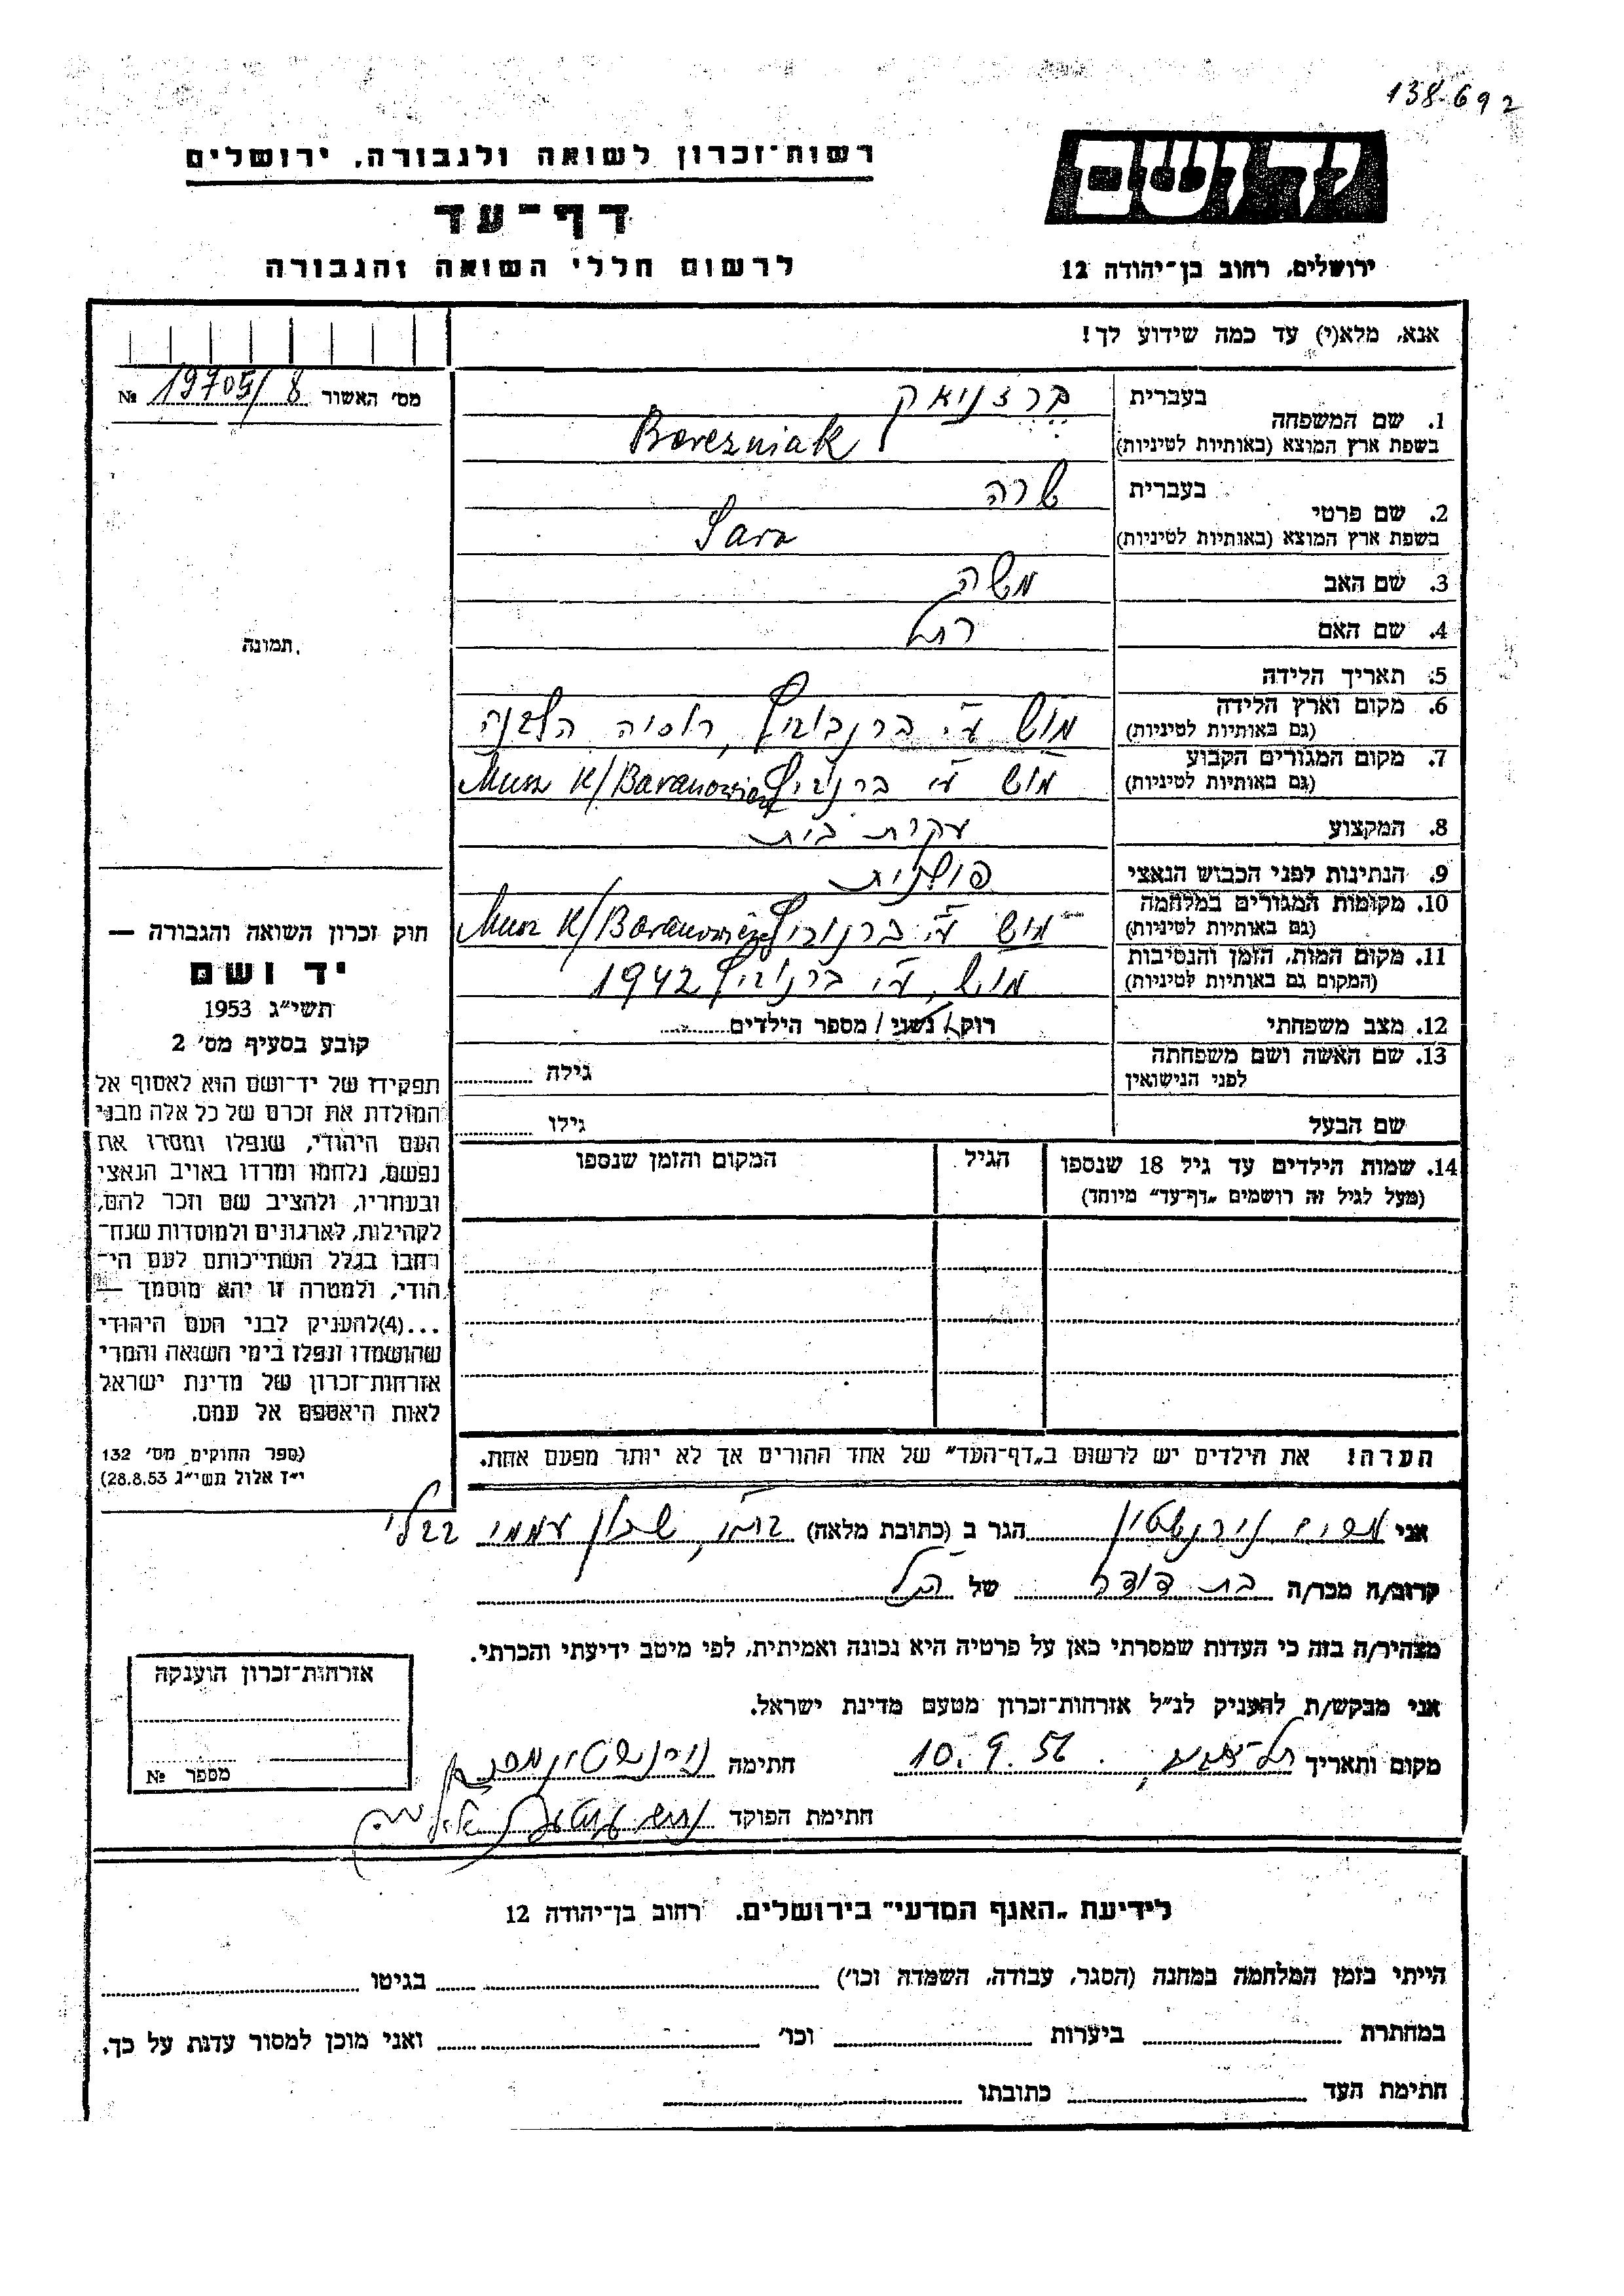 138692
יד ושם
רשות־זכרון לשואה ולגבורה, ירושלים
דף־עד
ירושלים, רחוב בן־יהודה 12
לרשום חללי השואה והגבורה
אנא, מלא(י) עד כמה שידוע לך!
מס' האשור 19705/8 №
1. שם המשפחה
בעברית ברזניאק
בשפת ארץ המוצא (באותיות לטיניות) Berezniak
2. שם פרטי
בעברית שרה
בשפת ארץ המוצא (באותיות לטיניות) Sara
3. שם האב משה
4. שם האם רחל
5. תאריך הלידה
6. מקום וארץ הלידה
(גם באותיות לטיניות) מוש ע"י ברנוביץ, רוסיה הלבנה
7. מקום המגורים הקבוע
(גם באותיות לטיניות) מוש ע"י ברנוביץ K/Baranowicz
8. המקצוע עקרת בית
9. הנתינות לפני הכבוש הנאצי פולנית
10. מקומות המגורים במלחמה
(גם באותיות לטיניות) מוש ע"י ברנוביץ K/Baranowicz
11. מקום המות, הזמן והנסיבות
(המקום גם באותיות לטיניות) מוש, ע"י ברנוביץ 1942
12. מצב משפחתי רוק/ נשוי / מספר הילדים
13. שם האשה ושם משפחתה
לפני הנישואין גילה
שם הבעל גילו
14. שמות הילדים עד גיל 18 שנספו
(מעל לגיל זה רושמים „דף־עד" מיוחד)
הגיל
המקום והזמן שנספו
תמונה
חוק זכרון השואה והגבורה —
יד ושם
תשי"ג 1953
קובע בסעיף מס' 2
תפקידו של יד־ושם הוא לאסוף אל
המולדת את זכרם של כל אלה מבני
העם היהודי, שנפלו ומסרו את
נפשם, נלחמו ומרדו באויב הנאצי
ובעוזריו, ולהציב שם וזכר להם,
לקהילות, לארגונים ולמוסדות שנח־
רבו בגלל השתייכותם לעם הי־
הודי, ולמטרה זו יהא מוסמך —
...(4)להעניק לבני העם היהודי
שהושמדו ונפלו בימי השואה והמרי
אזרחות־זכרון של מדינת ישראל
לאות היאספם אל עמם.
(ספר החוקים מס' 132
י"ז אלול תשי"ג 28.8.53)
הערה! את הילדים יש לרשום ב„דף־העד" של אחד ההורים אך לא יותר מפעם אחת.
אני נירנשטיין הגר ב (כתובת מלאה) שכון עממי
קרוב/ה מכר/ה בת דודה של הנ"ל
מצהיר/ה בזה כי העדות שמסרתי כאן על פרטיה היא נכונה ואמיתית, לפי מיטב ידיעתי והכרתי.
אני מבקש/ת להעניק לנ"ל אזרחות־זכרון מטעם מדינת ישראל.
מקום ותאריך 10.9.56 חתימה נירנשטיין
חתימת הפוקד
אזרחות־זכרון הוענקה
מספר №
לידיעת „האגף המדעי" בירושלים. רחוב בן־יהודה 12
הייתי בזמן המלחמה במחנה (הסגר, עבודה, השמדה וכו') בגיטו
במחתרת ביערות וכו' ואני מוכן למסור עדות על כך.
חתימת העד כתובתו